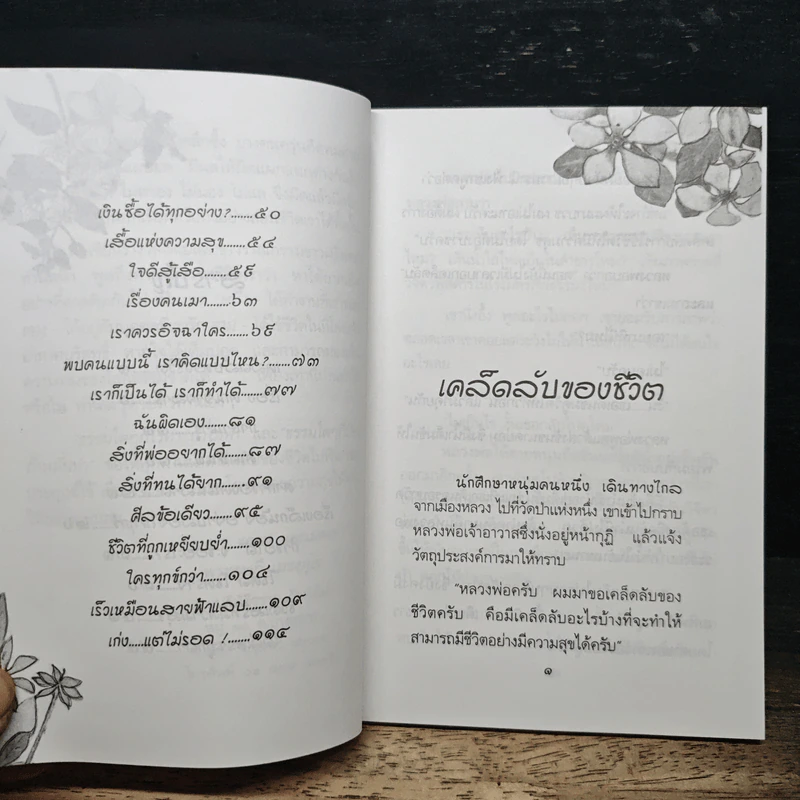 เงินซื้อได้ทุกอย่าง?.......๕๐
เสื้อแห่งความสุข.......๕๔
ใจดีสู้เสือ.......๕๙
เรื่องคนเมา.......๖๓
เราควรอิจฉาใคร.......๖๙
พบคนแบบนี้ เราคิดแบบไหน?.......๗๓
เราก็เป็นได้ เราก็ทำได้.......๗๗
ฉันผิดเอง.......๘๑
สิ่งที่พ่ออยากได้.......๘๗
สิ่งที่ทนได้ยาก.......๙๑
ศีลข้อเดียว.......๙๕
ชีวิตที่ถูกเหยียบย่ำ.......๑๐๐
ใครทุกข์กว่า.......๑๐๔
เร็วเหมือนสายฟ้าแลบ.......๑๐๙
เก่ง.....แต่ไม่รอด !.......๑๑๔
เคล็ดลับของชีวิต
นักศึกษาหนุ่มคนหนึ่ง เดินทางไกล
จากเมืองหลวง ไปที่วัดป่าแห่งหนึ่ง เขาเข้าไปกราบ
หลวงพ่อเจ้าอาวาสซึ่งนั่งอยู่หน้ากุฏิ แล้วแจ้ง
วัตถุประสงค์การมาให้ทราบ
"หลวงพ่อครับ ผมมาขอเคล็ดลับของ
ชีวิตครับ คือมีเคล็ดลับอะไรบ้างที่จะทำให้
สามารถมีชีวิตอย่างมีความสุขได้ครับ"
๑